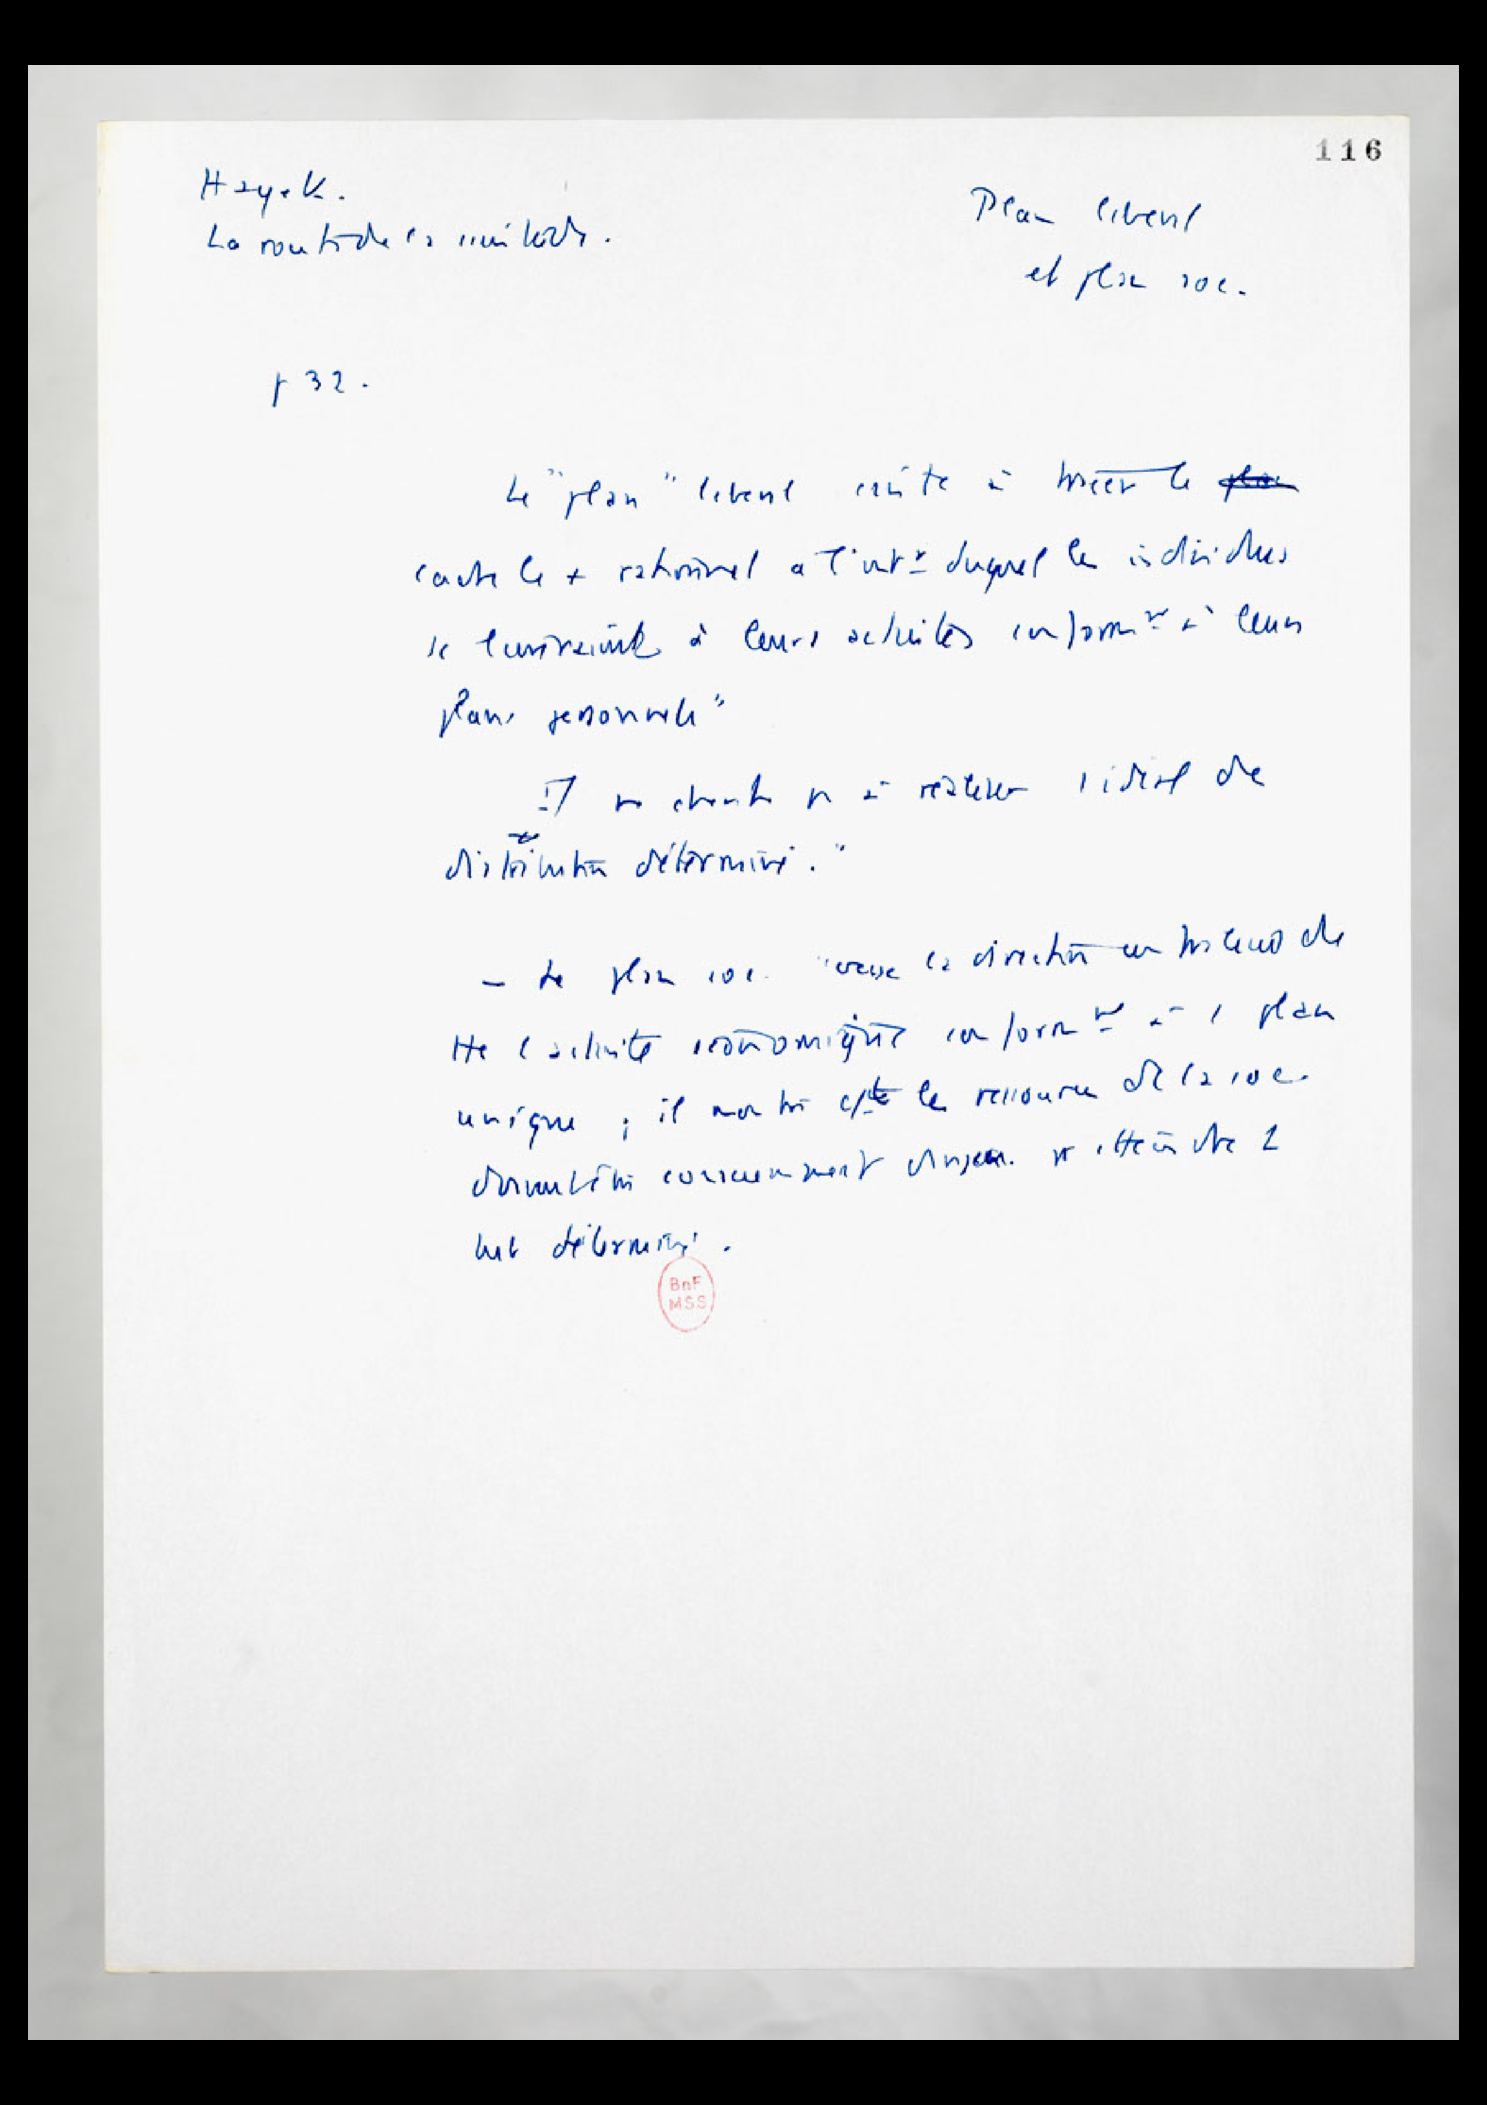 116
Hayek.
La route de la servitude.
Plan liberal
et plan soc.
p 32.
Le "plan" liberal à tracer le plan
cadre le + rationnel a l'intr duquel les individus
se à leurs activités conformt à leurs
plans personnels"
Il ne cherche pas à réaliser 1 idéal de
distribution déterminé."
- Le plan soc. "exige la direction centralisée de
tte l'activité économique conformt à 1 plan
unique ; il montre cpt les ressources de la soc.
doivent être consciemment pr atteindre 1
but déterminé.
BnF
MSS